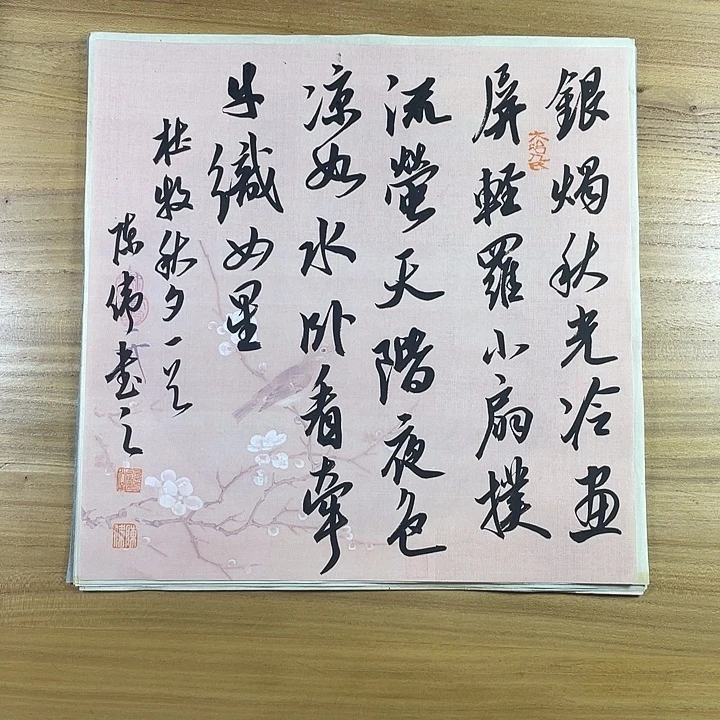 銀燭秋光冷画
屏輕羅小扇撲
流螢天階夜色
凉如水卧看牽
牛織女星
杜牧秋夕一首
陈伟书之